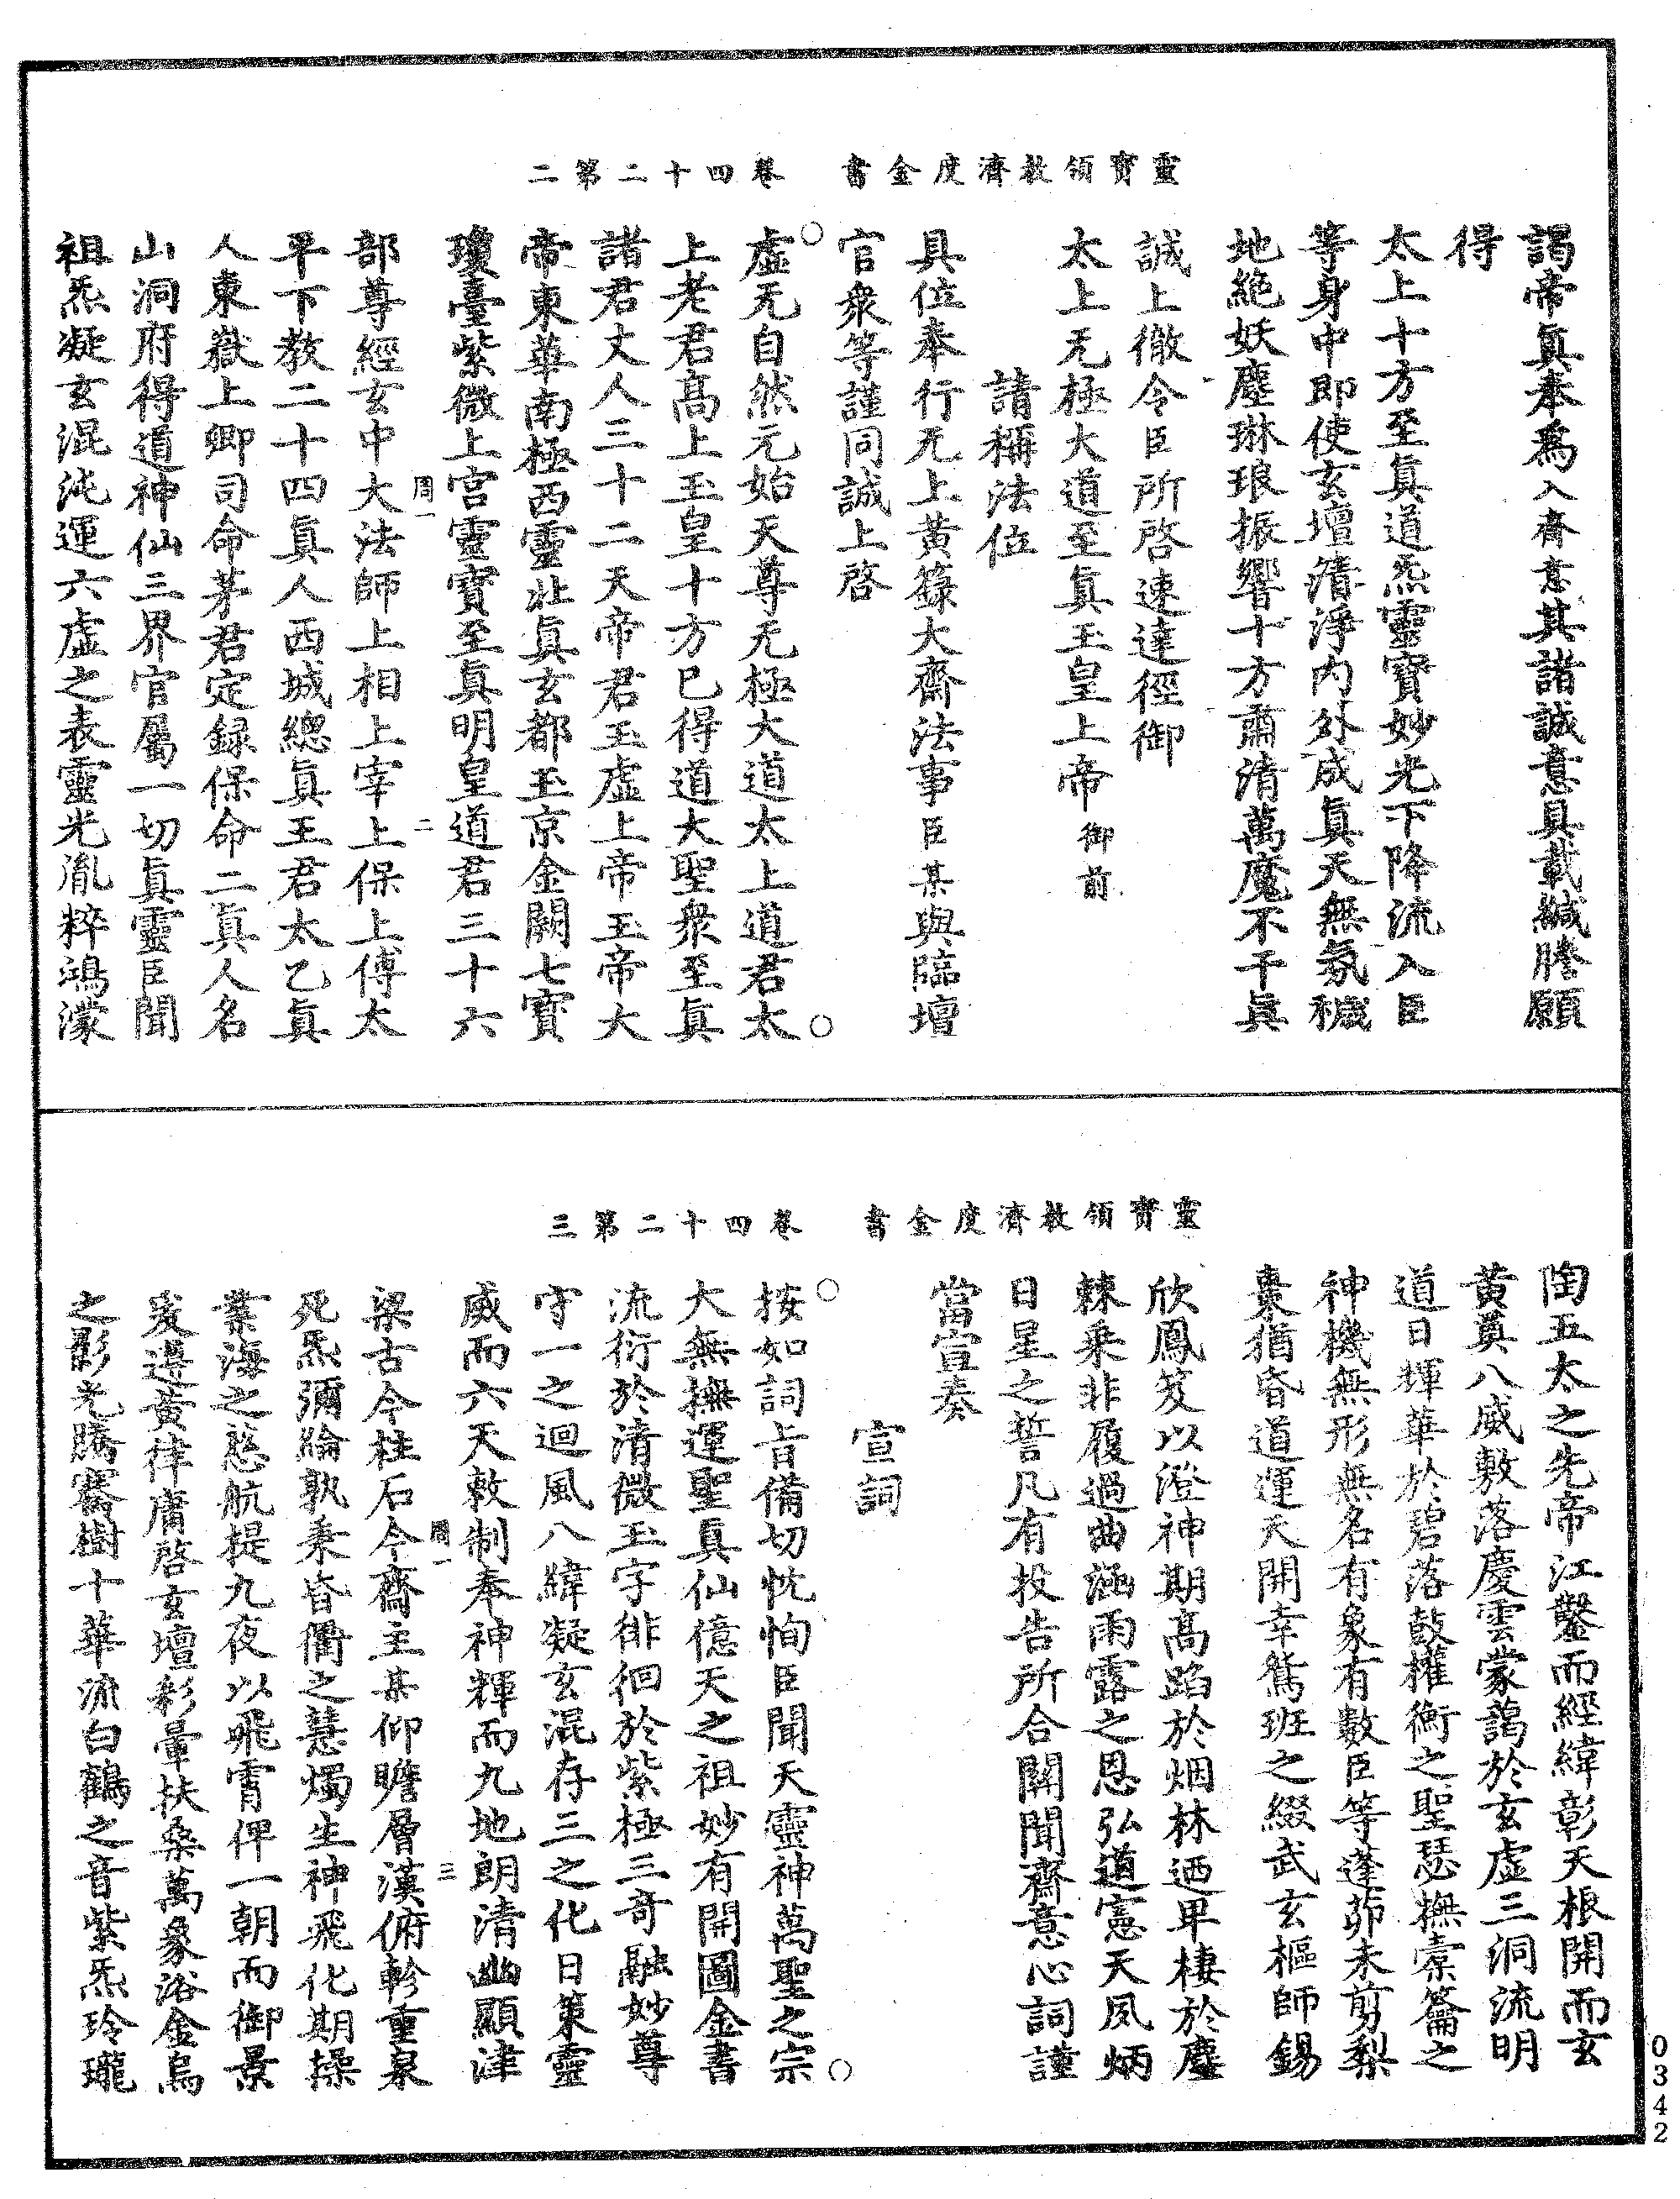 靈寶領教濟度金書　卷四十二第二
謁帝真奉爲入齋意其諸誠意具載緘謄願
得
太上十方至真道炁靈寶妙光下降流入臣
等身中即使玄壇清淨内外成真天無氛穢
地絶妖塵琳琅振響十方肅清萬魔不干真
誠上徹令臣所啓速達徑御
太上无極大道至真玉皇上帝御前
請稱法位
具位奉行无上黃籙大齋法事臣某與臨壇
官衆等謹同誠上啓
虛无自然元始天尊无極大道太上道君太
上老君高上玉皇十方已得道大聖衆至真
諸君丈人三十二天帝君玉虛上帝玉帝大
帝東華南極西靈北真玄都玉京金闕七寶
瓊臺紫微上宮靈寶至真明皇道君三十六
周一　二
部尊經玄中大法師上相上宰上保上傅太
平下教二十四真人西城總真王君太乙真
人東嶽上卿司命茅君定録保命二真人名
山洞府得道神仙三界官屬一切真靈臣聞
祖炁凝玄混沌運六虛之表靈光胤粹鴻濛
靈寶領教濟度金書　卷四十二第三
陶五太之先帝江鑿而經緯彰天根開而玄
黃奠八威敷落慶雲蒙藹於玄虛三洞流明
道日輝華於碧落鼓權衡之聖瑟撫橐籥之
神機無形無名有象有數臣等蓬茆未剪梨
棗猶昏道運天開幸鵷班之綴武玄樞師錫
欣鳳笈以澄神期高蹈於烟林迺卑棲於塵
棘乘非履過曲涵雨露之恩弘道憲天夙炳
日星之誓凡有投告所合關聞齋意心詞謹
當宣奏
宣詞
按如詞旨備切忱恂臣聞天靈神萬聖之宗
大無撫運聖真仙億天之祖妙有開圖金書
流衍於清微玉字徘徊於紫極三奇融妙尊
守一之迴風八緯凝玄混存三之化日策靈
威而六天敕制奉神輝而九地朗清幽顯津
周一　三
梁古今柱石今齋主某仰瞻層漢俯軫重泉
死炁彌綸孰秉昏衢之慧燭生神飛化期操
業海之慈航提九夜以飛霄俾一朝而御景
爰遵黃律庸啓玄壇彩暈扶桑萬象浴金烏
之影光騰騫樹十華流白鶴之音紫炁玲瓏
0342